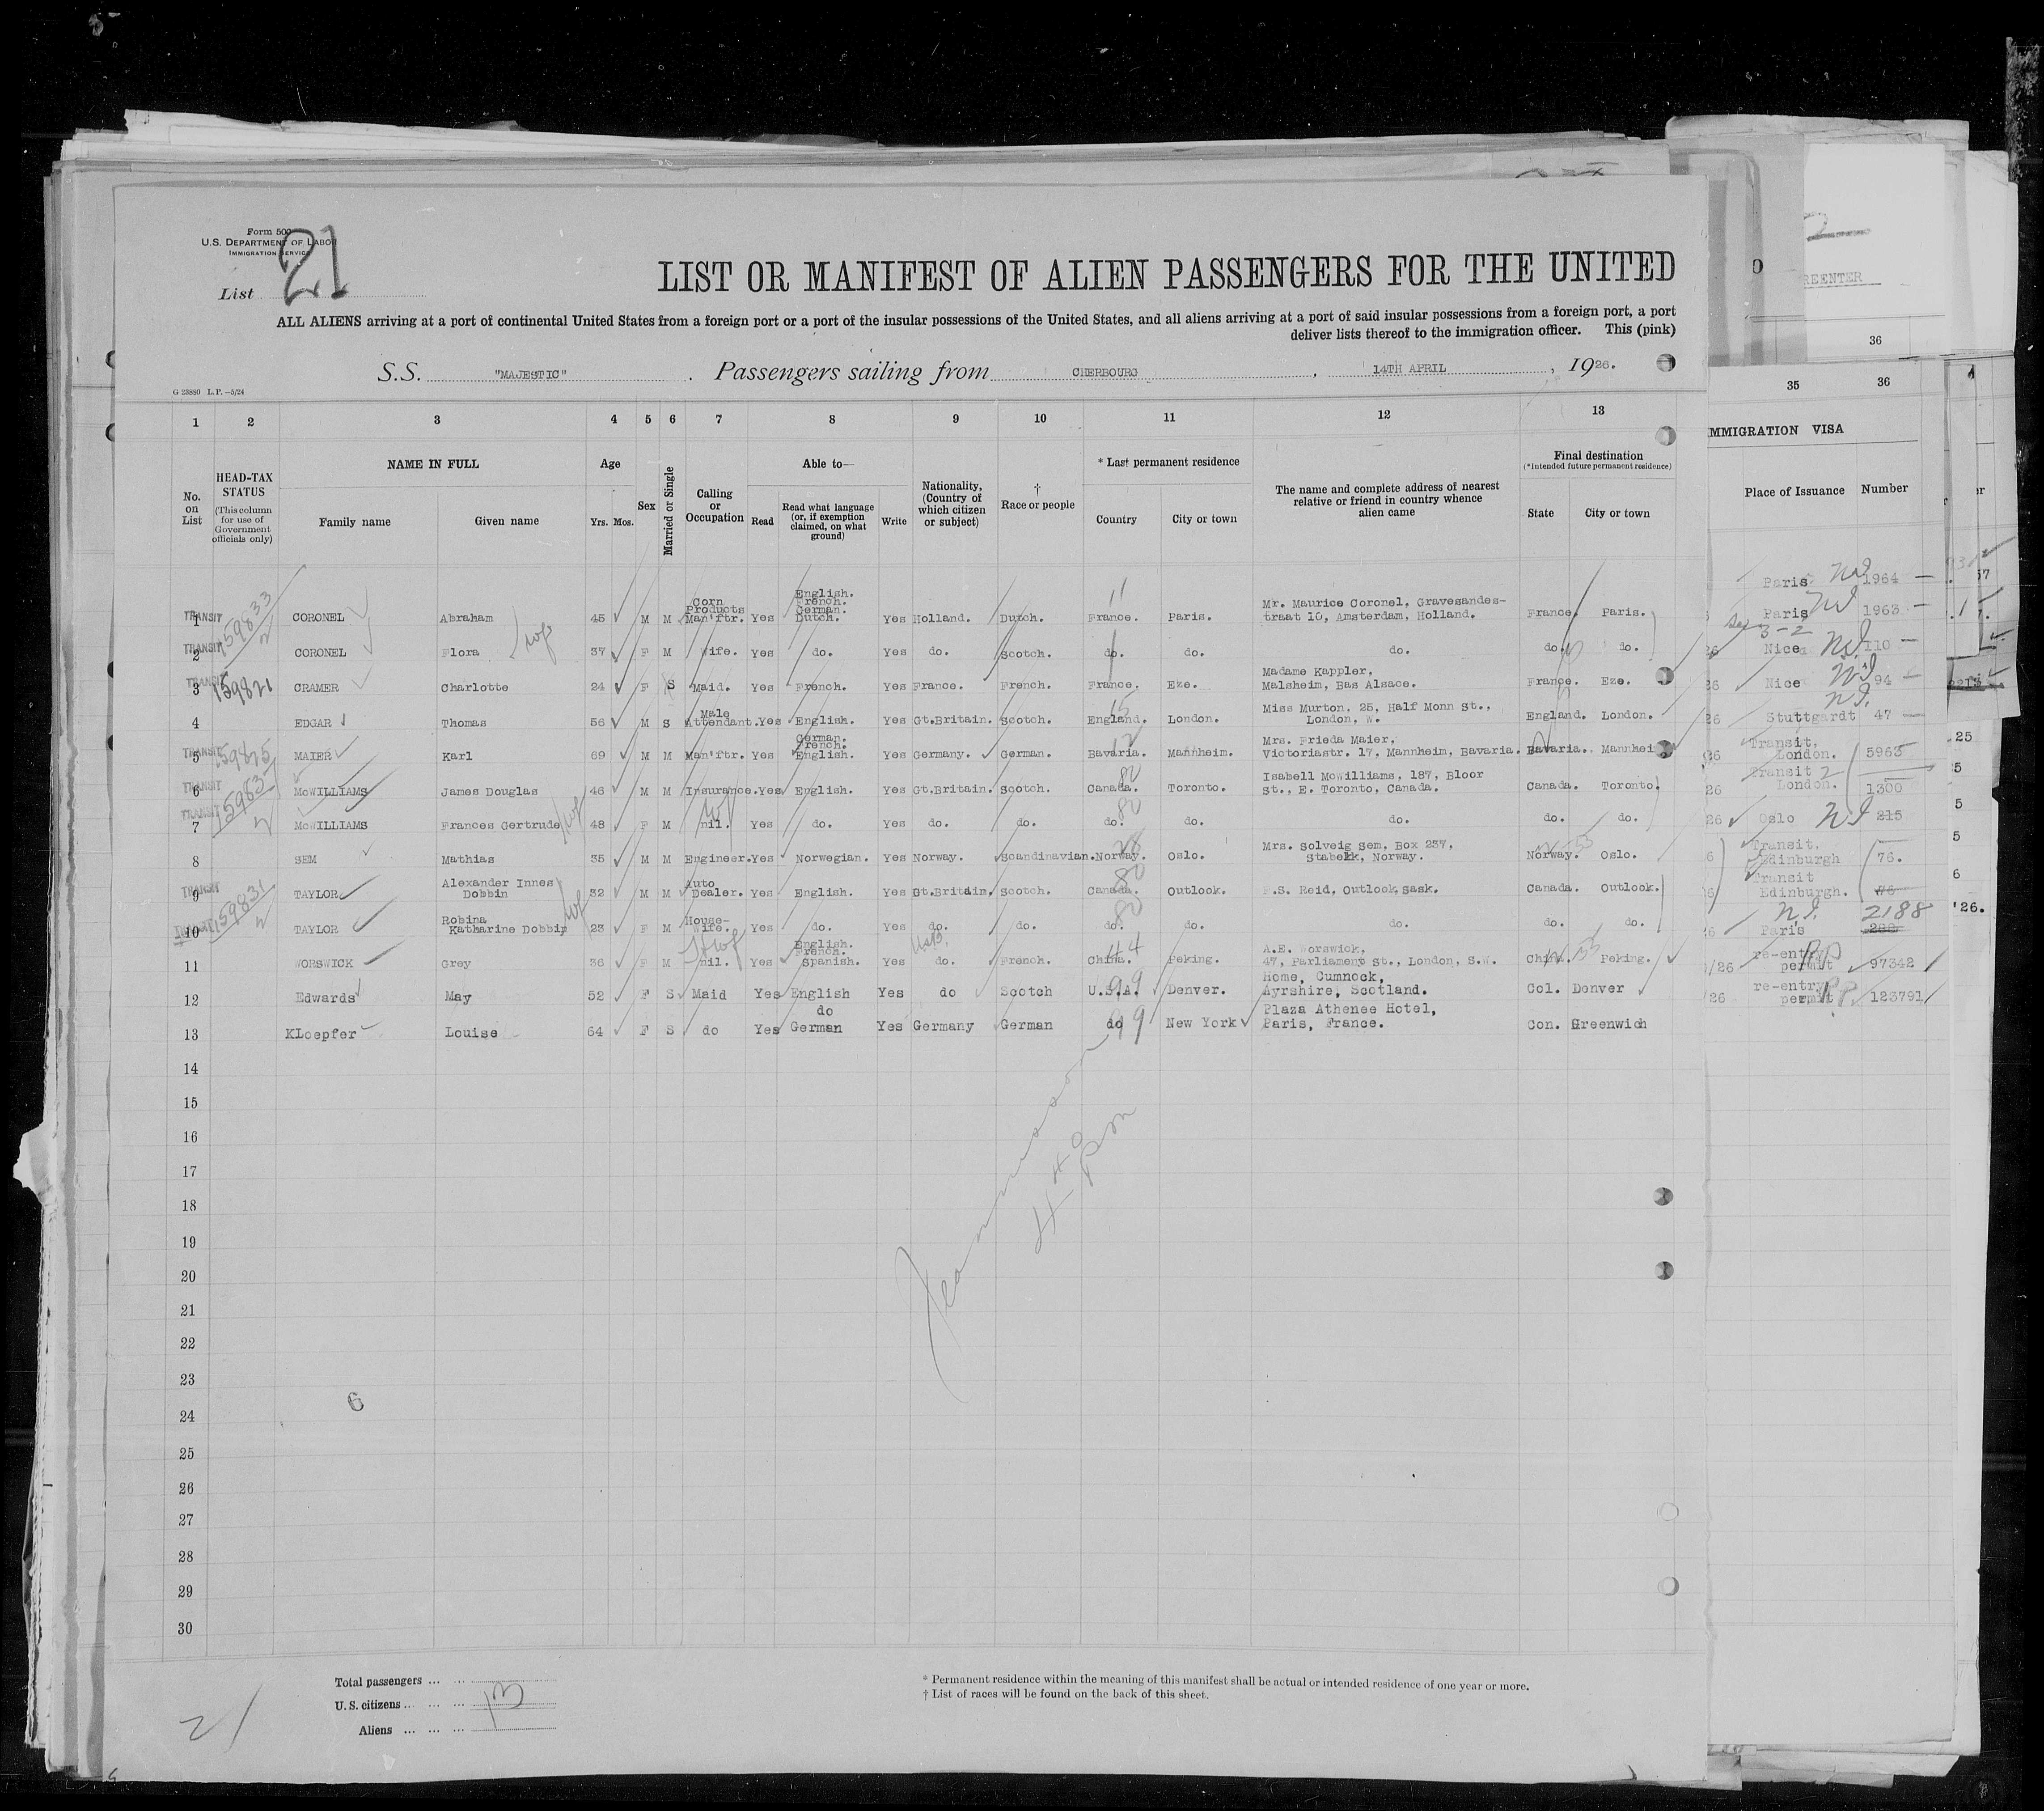 Form 500
U.S. DEPARTMENT OF LABOR
IMMIGRATION SERVICE
List 21
LIST OR MANIFEST OF ALIEN PASSENGERS FOR THE UNITED
ALL ALIENS arriving at a port of continental United States from a foreign port or a port of the insular possessions of the United States, and all aliens arriving at a port of said insular possessions from a foreign port, a port
deliver lists thereof to the immigration officer. This (pink)
S.S. "MAJESTIC" . Passengers sailing from CHERBOURG , 14TH APRIL , 1926.
G 23880 L. P. —5/24
REENTER
36
1 2 3 4 5 6 7 8 9 10 11 12 13 35 36
IMMIGRATION VISA
Place of Issuance Number
No. on List
HEAD-TAX STATUS
(This column for use of Government officials only)
NAME IN FULL
Family name Given name
Age
Yrs. Mos.
Sex
Married or Single
Calling or Occupation
Able to—
Read
Read what language (or, if exemption claimed, on what ground)
Write
Nationality, (Country of which citizen or subject)
† Race or people
* Last permanent residence
Country City or town
The name and complete address of nearest relative or friend in country whence alien came
Final destination
(*Intended future permanent residence)
State City or town
Paris NI 1964 —
1 TRANSIT 159833/2 CORONEL Abraham wf 45 M M Corn Products Man'ftr. Yes English. French. German. Dutch. Yes Holland. Dutch. 11 France. Paris. Mr. Maurice Coronel, Gravesandes-traat 10, Amsterdam, Holland. France. Paris. Paris NI 1963 —
2 TRANSIT CORONEL Flora 37 F M Wife. Yes do. Yes do. Scotch. do. do. do. do. do. 26 3-2 Nice NI 110 —
3 TRANSIT 159821 CRAMER Charlotte 24 F S Maid. Yes French. Yes France. French. France. Eze. Madame Kappler, Malsheim, Bas Alsace. France. Eze. 26 Nice NI 94 —
4 EDGAR Thomas 56 M S Male Attendant. Yes English. Yes Gt.Britain. Scotch. 15 England. London. Miss Murton. 25, Half Monn St., London, W. England. London. 26 Stuttgardt NI 47 —
5 TRANSIT 159825 MAIER Karl 69 M M Man'ftr. Yes German. French. English. Yes Germany. German. 12 Bavaria. Mannheim. Mrs. Frieda Maier, Victoriastr. 17, Mannheim, Bavaria. Bavaria. Mannhei 26 Transit, London. 5963
6 TRANSIT McWILLIAMS James Douglas 46 M M Insurance. Yes English. Yes Gt.Britain. Scotch. 80 Canada. Toronto. Isabell McWilliams, 187, Bloor St., E. Toronto, Canada. Canada. Toronto. 26 Transit 2 London. 1300
7 TRANSIT McWILLIAMS Frances Gertrude wf 48 F M nil. Yes do. Yes do. do. 80 do. do. do. do. do. 26 Oslo NI 215
8 SEM Mathias 35 M M Engineer. Yes Norwegian. Yes Norway. Scandinavian. Norway. Oslo. Mrs. Solveig Sem, Box 237, Stabekk, Norway. Norway. Oslo. Transit, Edinburgh 76.
9 TRANSIT 159831/2 TAYLOR Alexander Innes Dobbin 32 M M Auto Dealer. Yes English. Yes Gt.Britain. Scotch. 80 Canada. Outlook. P.S. Reid, Outlook, Sask. Canada. Outlook. Transit Edinburgh. 76
10 TRANSIT TAYLOR Robina Katharine Dobbin wf 23 F M House-wife. Yes do. Yes do. do. 80 do. do. do. do. do. NI. Paris 2188
11 WORSWICK Grey 36 F M nil. Yes English. French. Spanish. Yes do. French. 44 China. Peking. A.E. Worswick, 47, Parliament St., London, S.W. China. Peking. /26 re-entry permit RP 97342
12 Edwards May 52 F S Maid Yes English Yes do Scotch 99 U.S.A. Denver. Home, Cumnock, Ayrshire, Scotland. Col. Denver /26 re-entry permit RP. 123791
13 KLoepfer Louise 64 F S do Yes do German Yes Germany German 99 do New York Plaza Athenee Hotel, Paris, France. Con. Greenwich
14
15
16
17
18
19
20
21
22
23
24
25
26
27
28
29
30
6
Total passengers
U. S. citizens
Aliens
13
21
* Permanent residence within the meaning of this manifest shall be actual or intended residence of one year or more.
† List of races will be found on the back of this sheet.